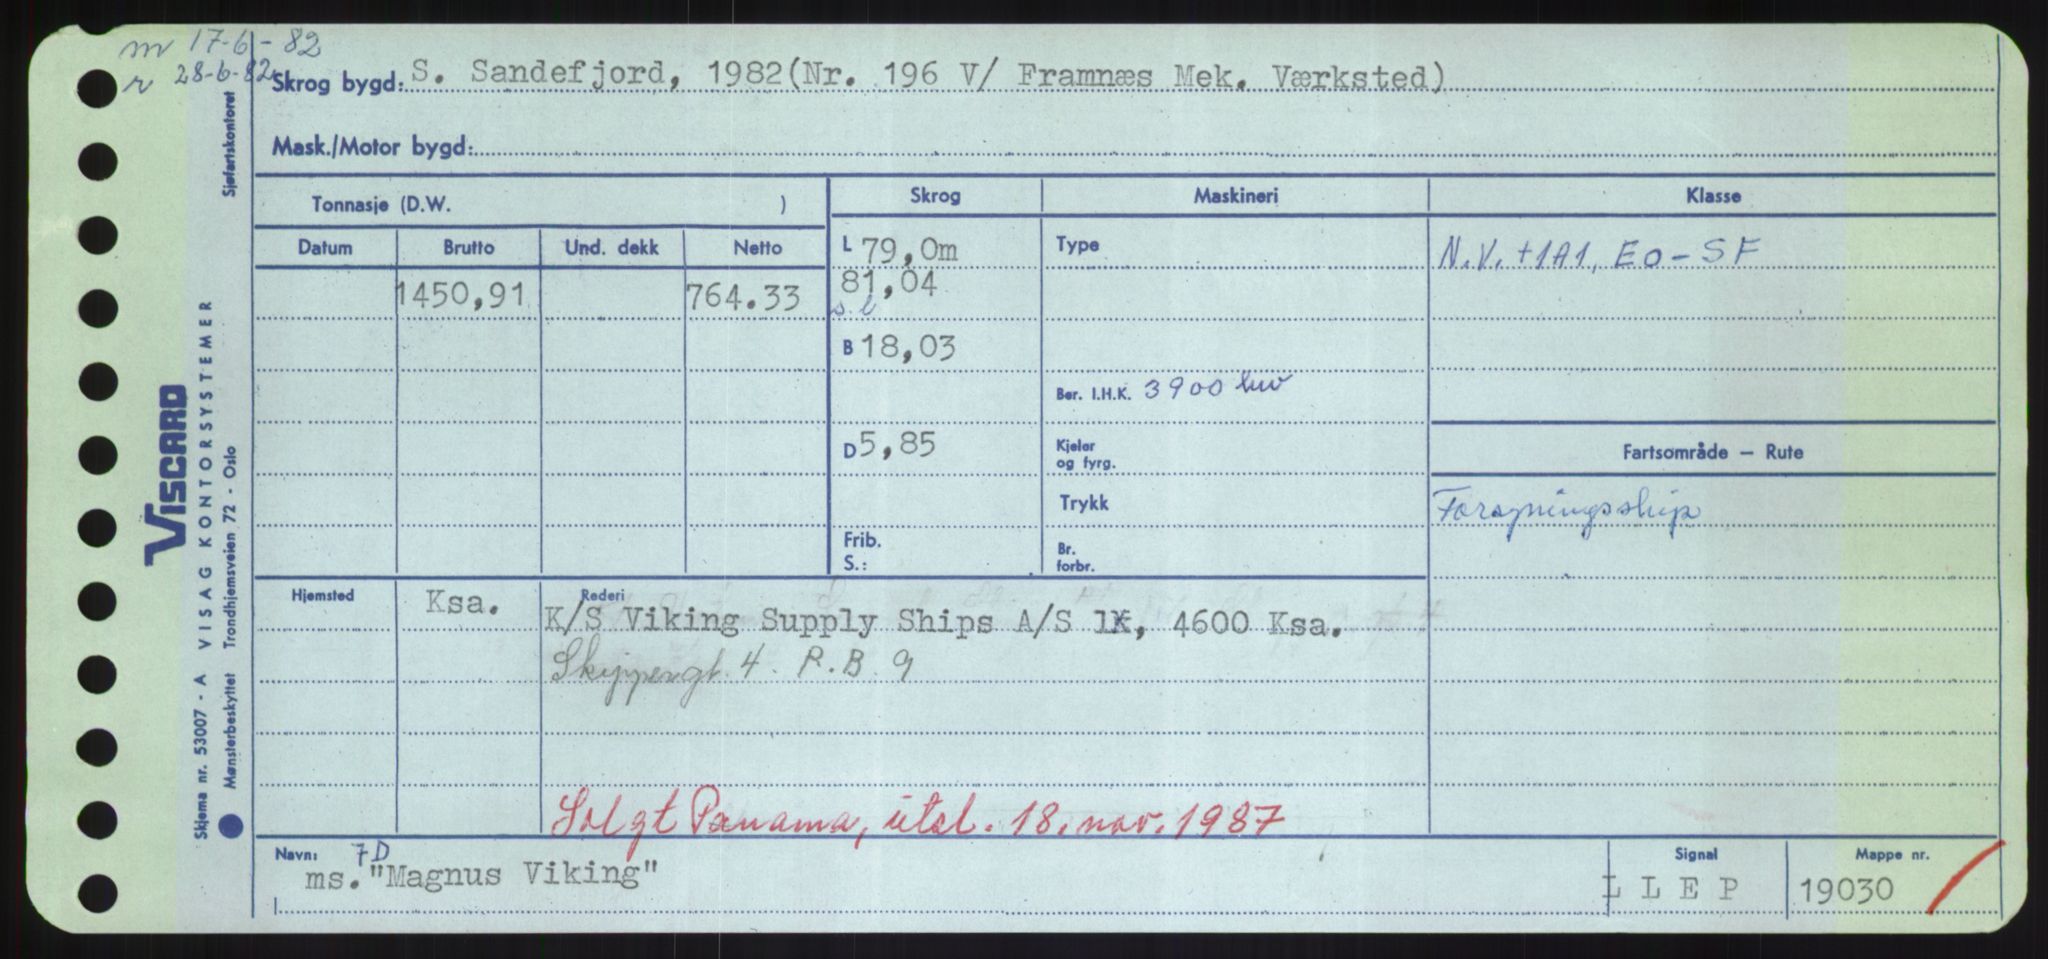 m 17-6-82
r 28-6-82
Skrog bygd: S. Sandefjord, 1982(Nr. 196 V/ Framnæs Mek. Værksted)
Mask./Motor bygd:
Tonnasje (D.W. )
Skrog Maskineri Klasse
Datum Brutto Und. dekk Netto
L 79,0m Type N.V. +1A1, EO-SF
1450,91 764.33 81,04
s.l
B 18,03
Ber. I.H.K. 3900
D 5,85 Kjeler
og fyrg.
Fartsområde — Rute
Trykk
Forsyningsskip
Frib.
S.:
Br.
forbr.
Hjemsted Ksa. Rederi
K/S Viking Supply Ships A/S 1, 4600 Ksa.
Skippergt. 4. P.B. 9
Solgt Panama, utsl. 18. nov. 1987
Navn: 7D
ms. "Magnus Viking"
Signal
L L E P
Mappe nr.
19030
Sjøfartskontoret
VISCARD
VISAG KONTORSYSTEMER
Trondhjemsveien 72 - Oslo
Skjema nr. 53007 - A
Mønsterbeskyttet